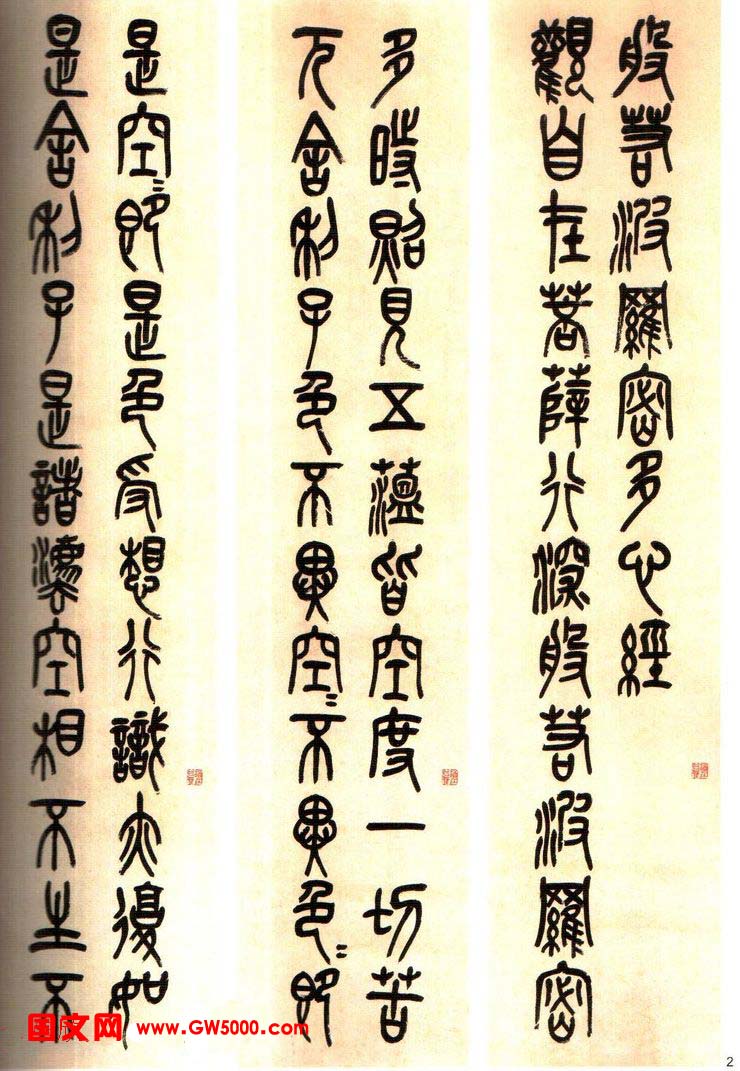 般若波羅密多心經
觀自在菩薩行深般若波羅密
多時照見五蘊皆空度一切苦
厄舍利子色不異空〻不異色〻即
是空〻即是色受想行識亦復如
是舍利子是諸法空相不生不
图文网 www.GW5000.com
2